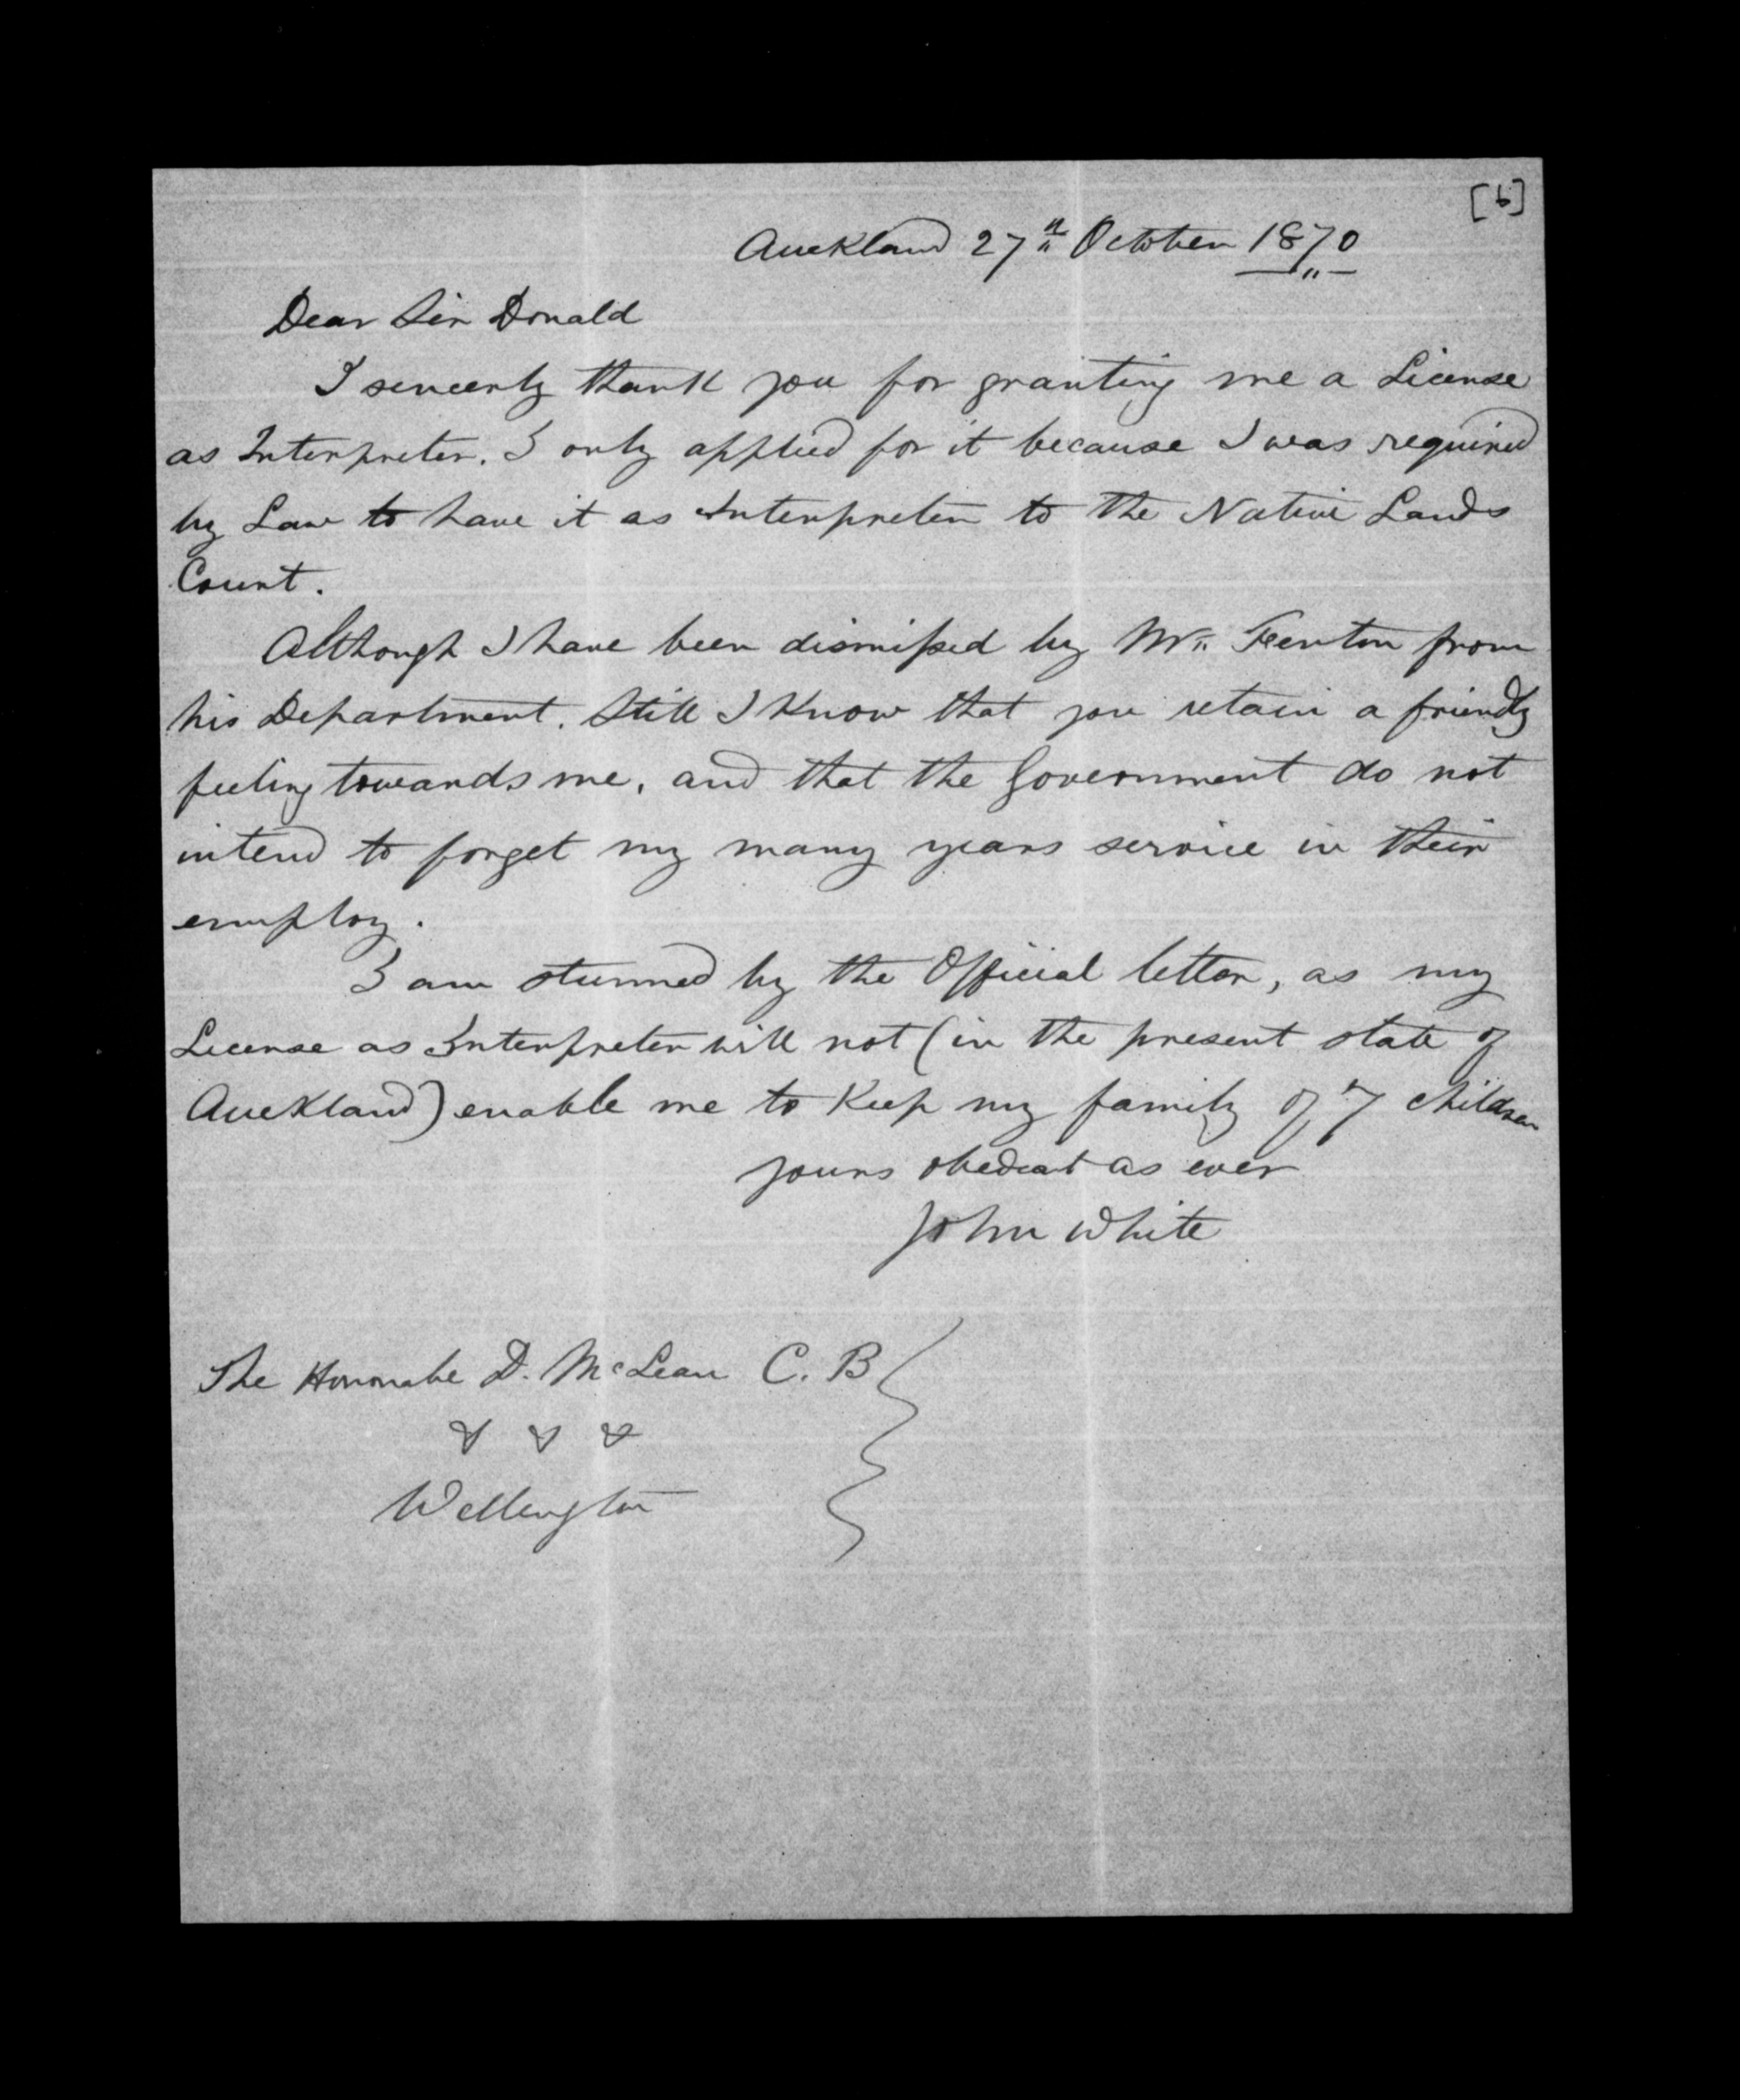 [6]
Auckland 27th October 1870
Dear Sir Donald
I sincerly thank you for granting me a License
as Interpreter. I only applied for it because I was required
by Law to have it as Interpreter to the Native Lands
Court.
Although I have been dismissed by Mr. Fenton from
his Department. Still I Know that you retain a friendly
feeling towards me, and that the Government do not
intend to forget my many years service in their
employ.
I am stunned by the Official letter, as my
License as Interpreter will not (in the present state of
Auckland) enable me to Keep my family of 7 children
yours obedient as ever
John White
The Honorabe D. McLean C. B
& & &
Wellington